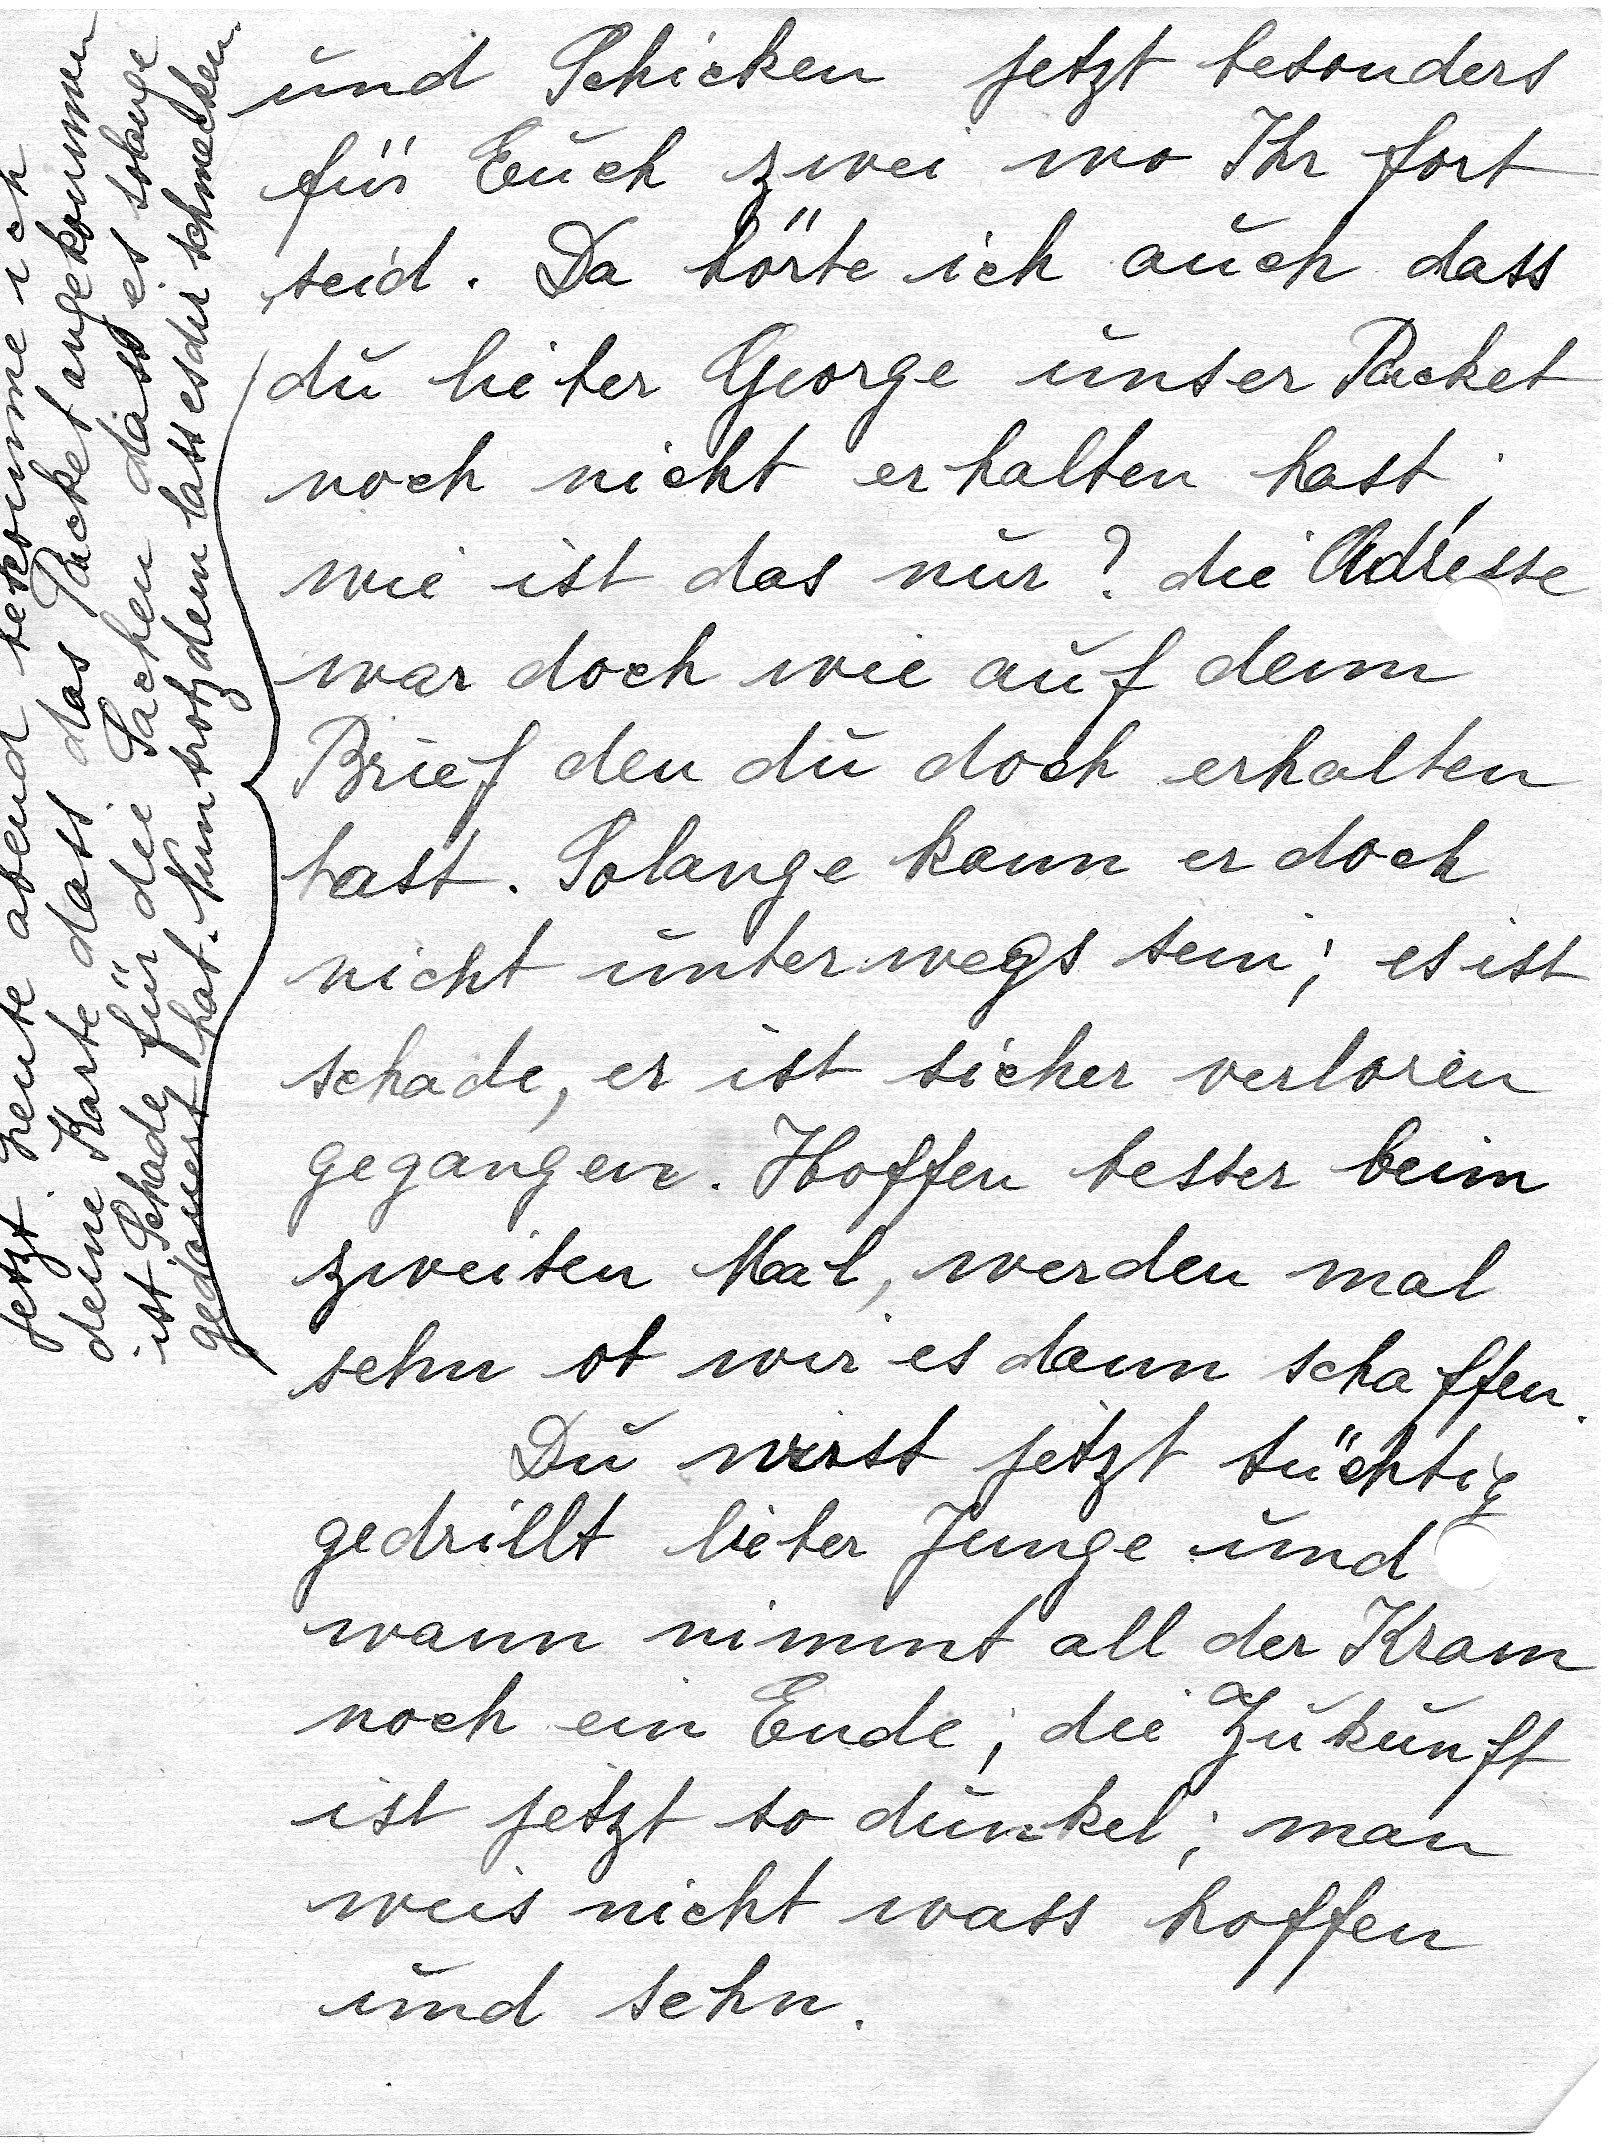 und Schicken jetzt besonders
für Euch zwei wo Ihr fort
seid. Da hörte ich auch dass
du lieber George unser Packet
noch nicht erhalten hast;
wie ist das nur? die Adresse
war doch wie auf deim
Brief den du doch erhalten
hast. Solange kann er doch
nicht unterwegs sein; es ist
schade, er ist sicher verloren
gegangen. Hoffen besser beim
zweiten Mal, werden mal
sehn ob wir es dann schaffen.
Du wirst jetzt tüchtig
gedrillt lieber Junge und
wann nimmt all der Kram
noch ein Ende; die Zukunft
ist jetzt so dunkel; man
weis nicht wass hoffen
und sehn.
Jetzt heute abend bekomme ich
deine Karte dass das Packet angekommen
ist Schade für die Sachen dass es solange
gedauert hat. Nun trotzdem lass es dir schmecken.